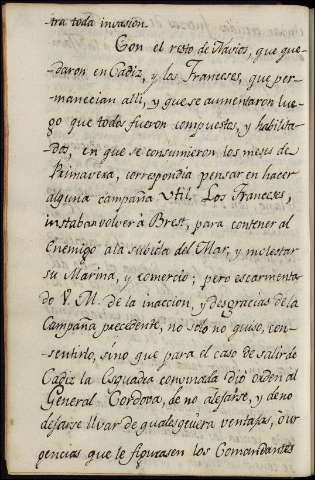 tra toda invasion.
Con el resto de Navios, que que-
-daron en Cadiz, y los Franceses, que per-
manecian alli, y que se aumentaron lue-
go que todos fueron compuestos, y habilita-
dos, en que se consumieron los meses de
Primavera, correspondia pensar en hacer
alguna campaña util. Los Franceses,
instaban volver à Brest, para contener al
Enemigo ala subida del Mar, y molestar
su Marina, y comercio; pero escarmenta
do V. M. de la inaccion, y desgracias dela
Campaña precedente, no sólo no quiso, con-
-sentirlo, sino que para el caso de salir de
Cadiz la Esquadra convinada dió orden al
General Cordova, de no alejarse, y de no
dejarse llvar de qualesquiera ventajas, ò ur
gencias que le figurasen los Comandantes